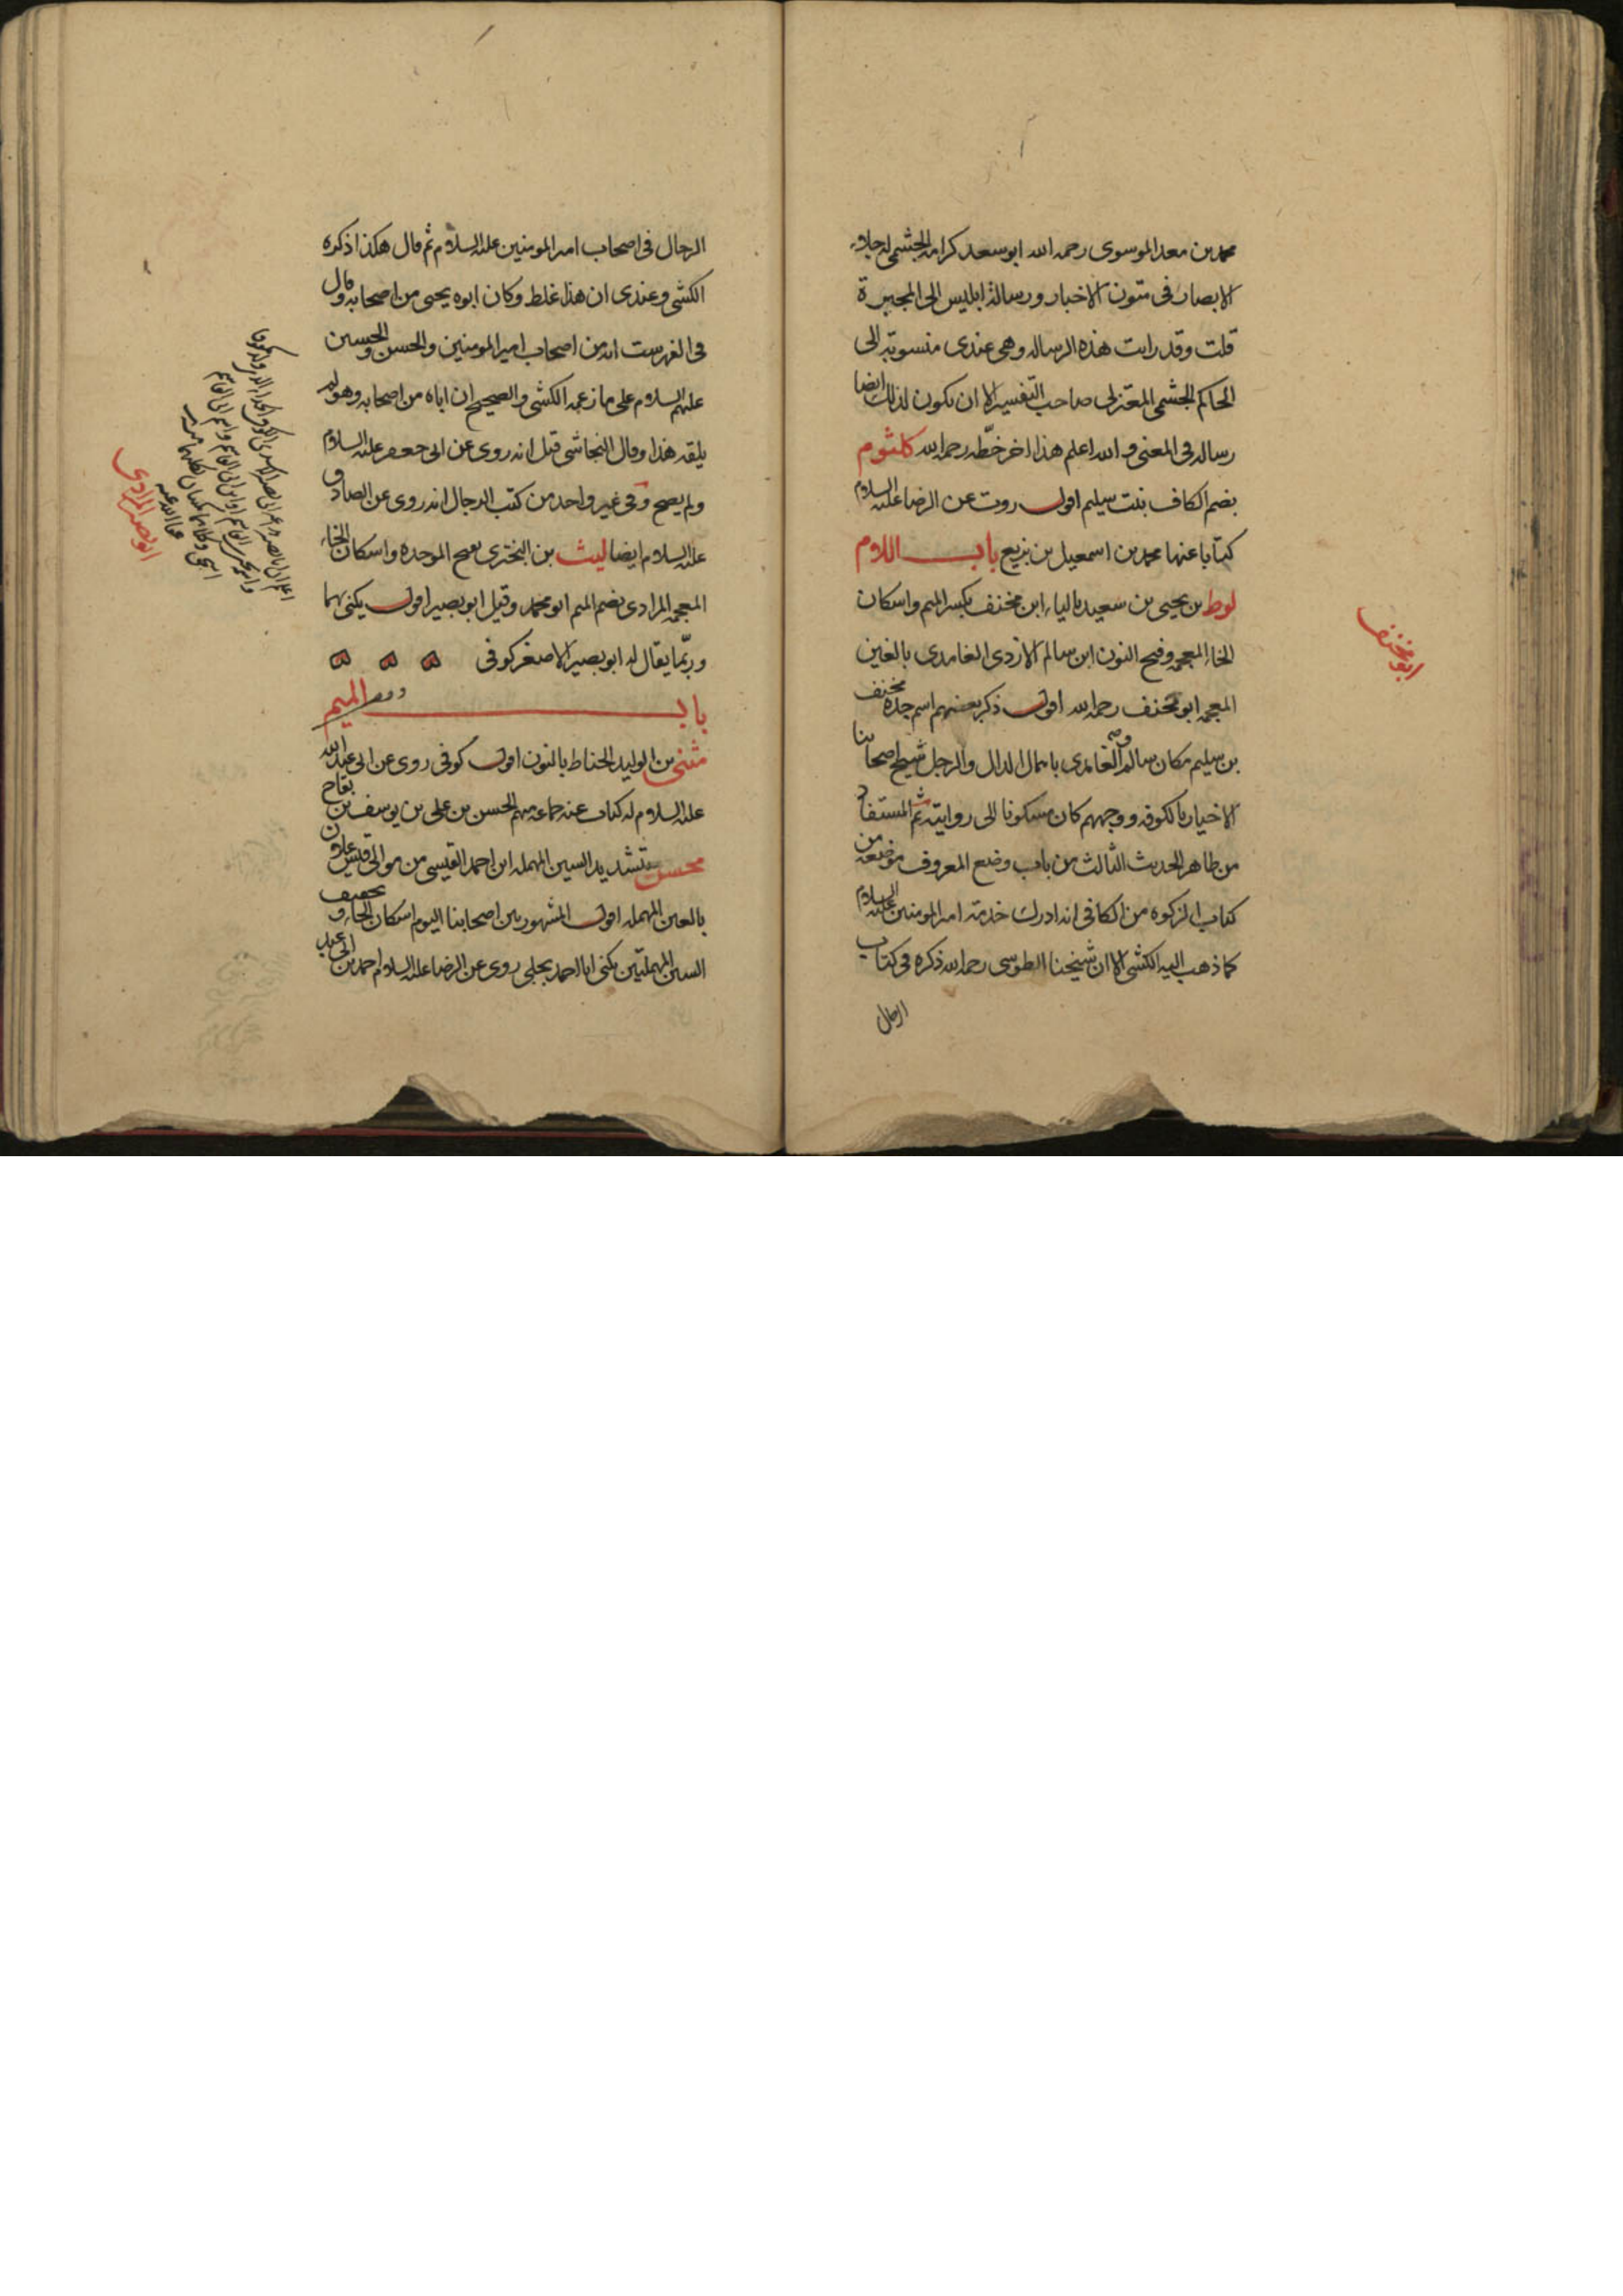 محمد بن معد الموسوى رحمه الله ابو سعد كرامه الجشمى له جلاء
الابصار فى متون الاخبار و رسالة ابليس الى المجبرة
قلت وقد رايت هذه الرساله وهى عندى منسوبة الى
الحاكم الجشمى المعتزلى صاحب التفسير الا ان يكون لذلك ايضا
رساله فى المعنى و الله اعلم هذا اخر خطّه رحمه الله كلثوم
بضم الكاف بنت سليم اقول روت عن الرضا عليه السلام
كتابا عنها محمد بن اسمعيل بن بزيع باب اللام
لوط بن يحيى بن سعيد بالياء ابن مخنف بكسر الميم واسكان
الخاء المعجمه وفتح النون ابن سالم الازدى الغامدى بالغين
المعجمه ابو مخنف رحمه الله اقول ذكر بعضهم اسم جده مخنف
بن سليم مكان سالم الغامدى باهمال الدال والرجل شيخ اصحابنا
الاخيار بالكوفه ووجههم كان مسكونا الى روايته ثم المستفاد
من ظاهر الحديث الثالث من باب وضع المعروف موضعه من
كتاب الزكوه من الكافى انه ادرك خدمة امير المومنين عليه السلام
كما ذهب اليه الكشى الا ان شيخنا الطوسى رحمه الله ذكره فى كتاب
الرجال
ابو مخنف
الرجال فى اصحاب امير المومنين عليه السلام ثم قال هكذا ذكره
الكشى وعندى ان هذا غلط وكان ابوه يحيى من اصحابه وقال
فى الفهرست انه من اصحاب امير المومنين والحسن والحسين
عليهم السلام على ما زعمه الكشى والصحيح ان اباه من اصحابه وهو لم
يلقه هذا وقال النجاشى قيل انه روى عن ابى جعفر عليه السلام
ولم يصح وفى غير واحد من كتب الرجال انه روى عن الصادق
عليه السلام ايضا ليث بن البخترى بفتح الموحده واسكان الخاء
المعجمه المرادى بضم الميم ابو محمد وقيل ابو بصير اقول يكنى بهما
وربّما يقال له ابو بصير الاصغر كوفى
باب الميم
مثنى بن الوليد الحناط بالنون اقول كوفى روى عن ابى عبد الله
عليه السلام له كتاب عنه جماعه منهم الحسن بن على بن يوسف بن بقاح
محسن بتشديد السين المهمله ابن احمد القيسى من موالى قيس علان
بالعين المهمله اقول المشهور بين اصحابنا اليوم اسكان الحاء و تخفيف
السين المهملتين يكنى ابا احمد بجلى روى عن الرضا عليه السلام احمد بن ابى عبد
ابو بصير المرادى